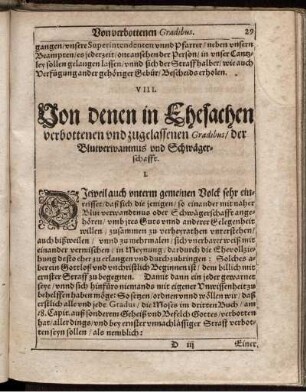 Von verbottenen Gradibus. 29
gangen / vnsere Superintendenten vnnd Pfarrer / neben vnsern
Beampten / es jederzeit / one ansehender Person / in vnser Cantz-
ley sollen gelangen lassen / vnnd sich der Straff halber / wie auch
Verfügung an der gehöriger Gebür / Bescheids erholen.
VIII.
Von denen in Ehesachen
verbottenen vnd zugelassenen Gradibus / der
Blutverwantnus vnd Schwäger-
schafft.
I.
DJeweil auch vnterm gemeinen Volck sehr ein-
reisset / daß sich die jenigen / so einander mit naher
Blutverwandtnus oder Schwägerschafft ange-
hören / vmb jres Guts vnnd anderer Gelegenheit
willen / zusammen zu verheyrathen vnterstehen /
auch bißweilen / vnnd zu mehrmalen / sich vnerbarer weiß mit
einander vermischen / in Meynung / dardurch die Ehevollzie-
hung desto eher zu erlangen vnd durch zubringen: Solches a-
ber ein Gottloß vnd vnchristlich Beginnen ist / dem billich mit
ernster Straff zu begegnen. Damit dann ein jeder gewarnet
seye / vnnd sich hinfüro niemands mit eigener Vnwissenheit zu
behelffen haben möge: So setzen / ordnen vnd wöllen wir / daß
erstlich alle vnd jede Gradus, die Moses im dritten Buch / am
18. Capit. auß sonderem Geheiß vnd Befelch Gottes / verbotten
hat / allerdings / vnd bey ernster vnnachlässiger Straff verbot-
ten seyn sollen / als nemblich:
D iij Einer,